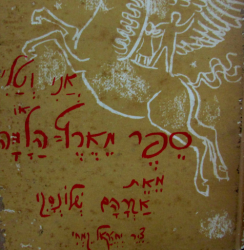 אֲנִי וְטַלִי
אוֹ
סֵפֶר מֵאֶרֶץ הַלָּמָּה
מֵאֵת
אַבְרָהָם שְׁלוֹנְסְקִי